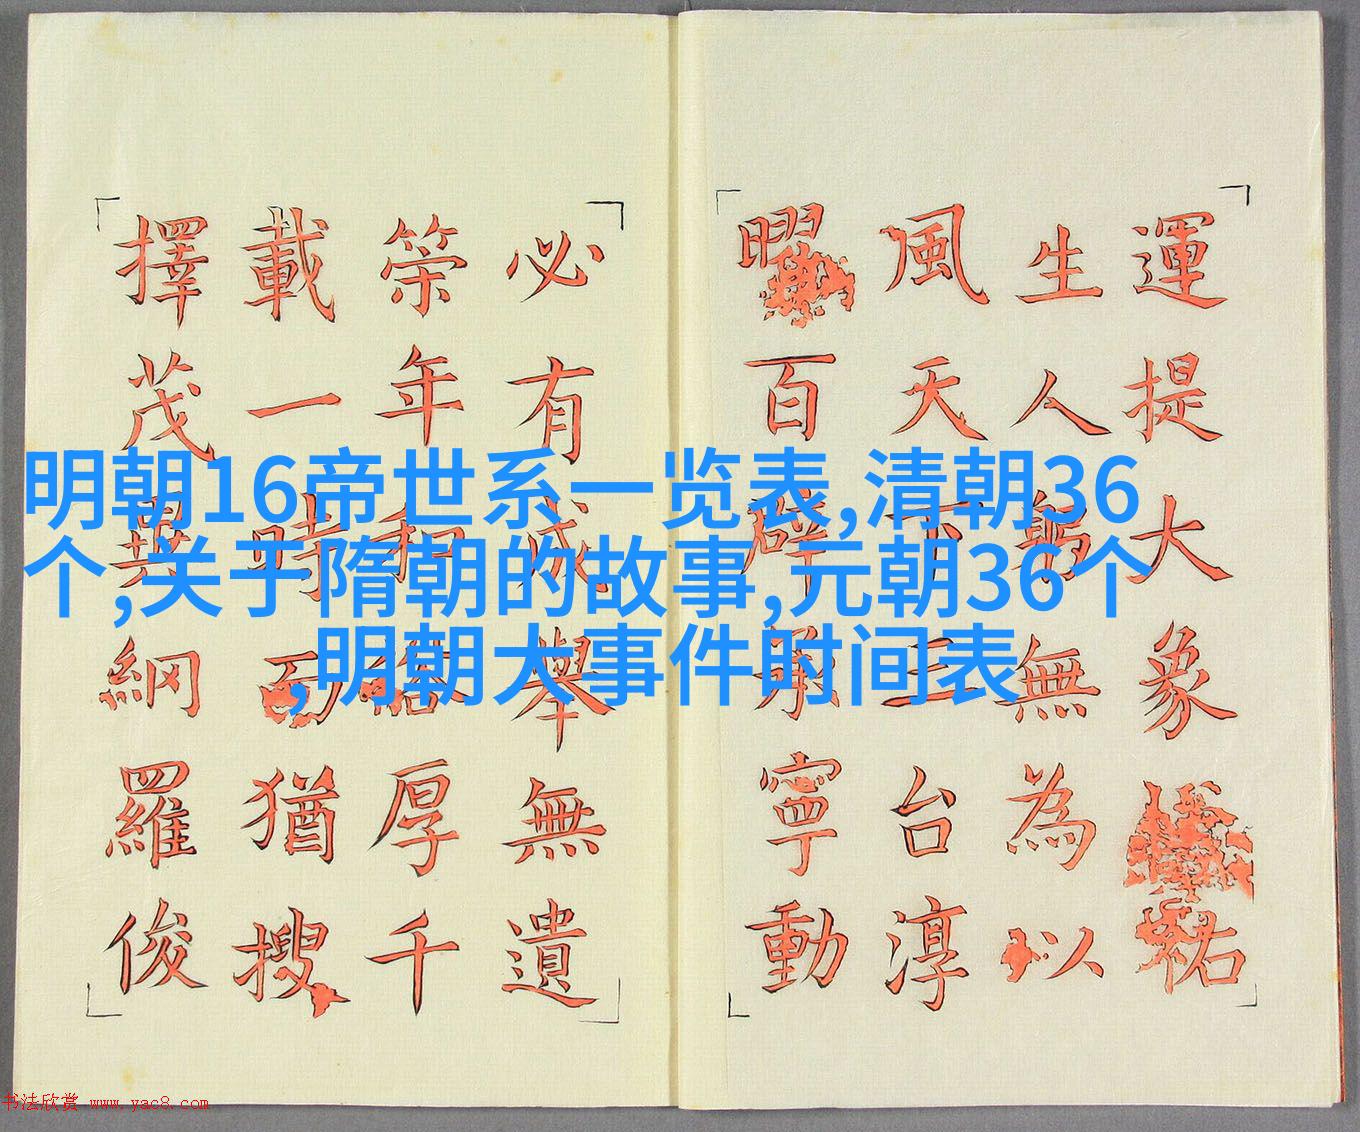 明朝16帝世系一览表,清朝36
个,关于隋朝的故事,元朝36个
,明朝大事件时间表
運提大象祐
生人無為以
風天下三台淳
百辟寧動
必有成舉無遺
年和厚千
載一時猶搜
擇茂異網羅俊
书法欣赏 www.yac8.com